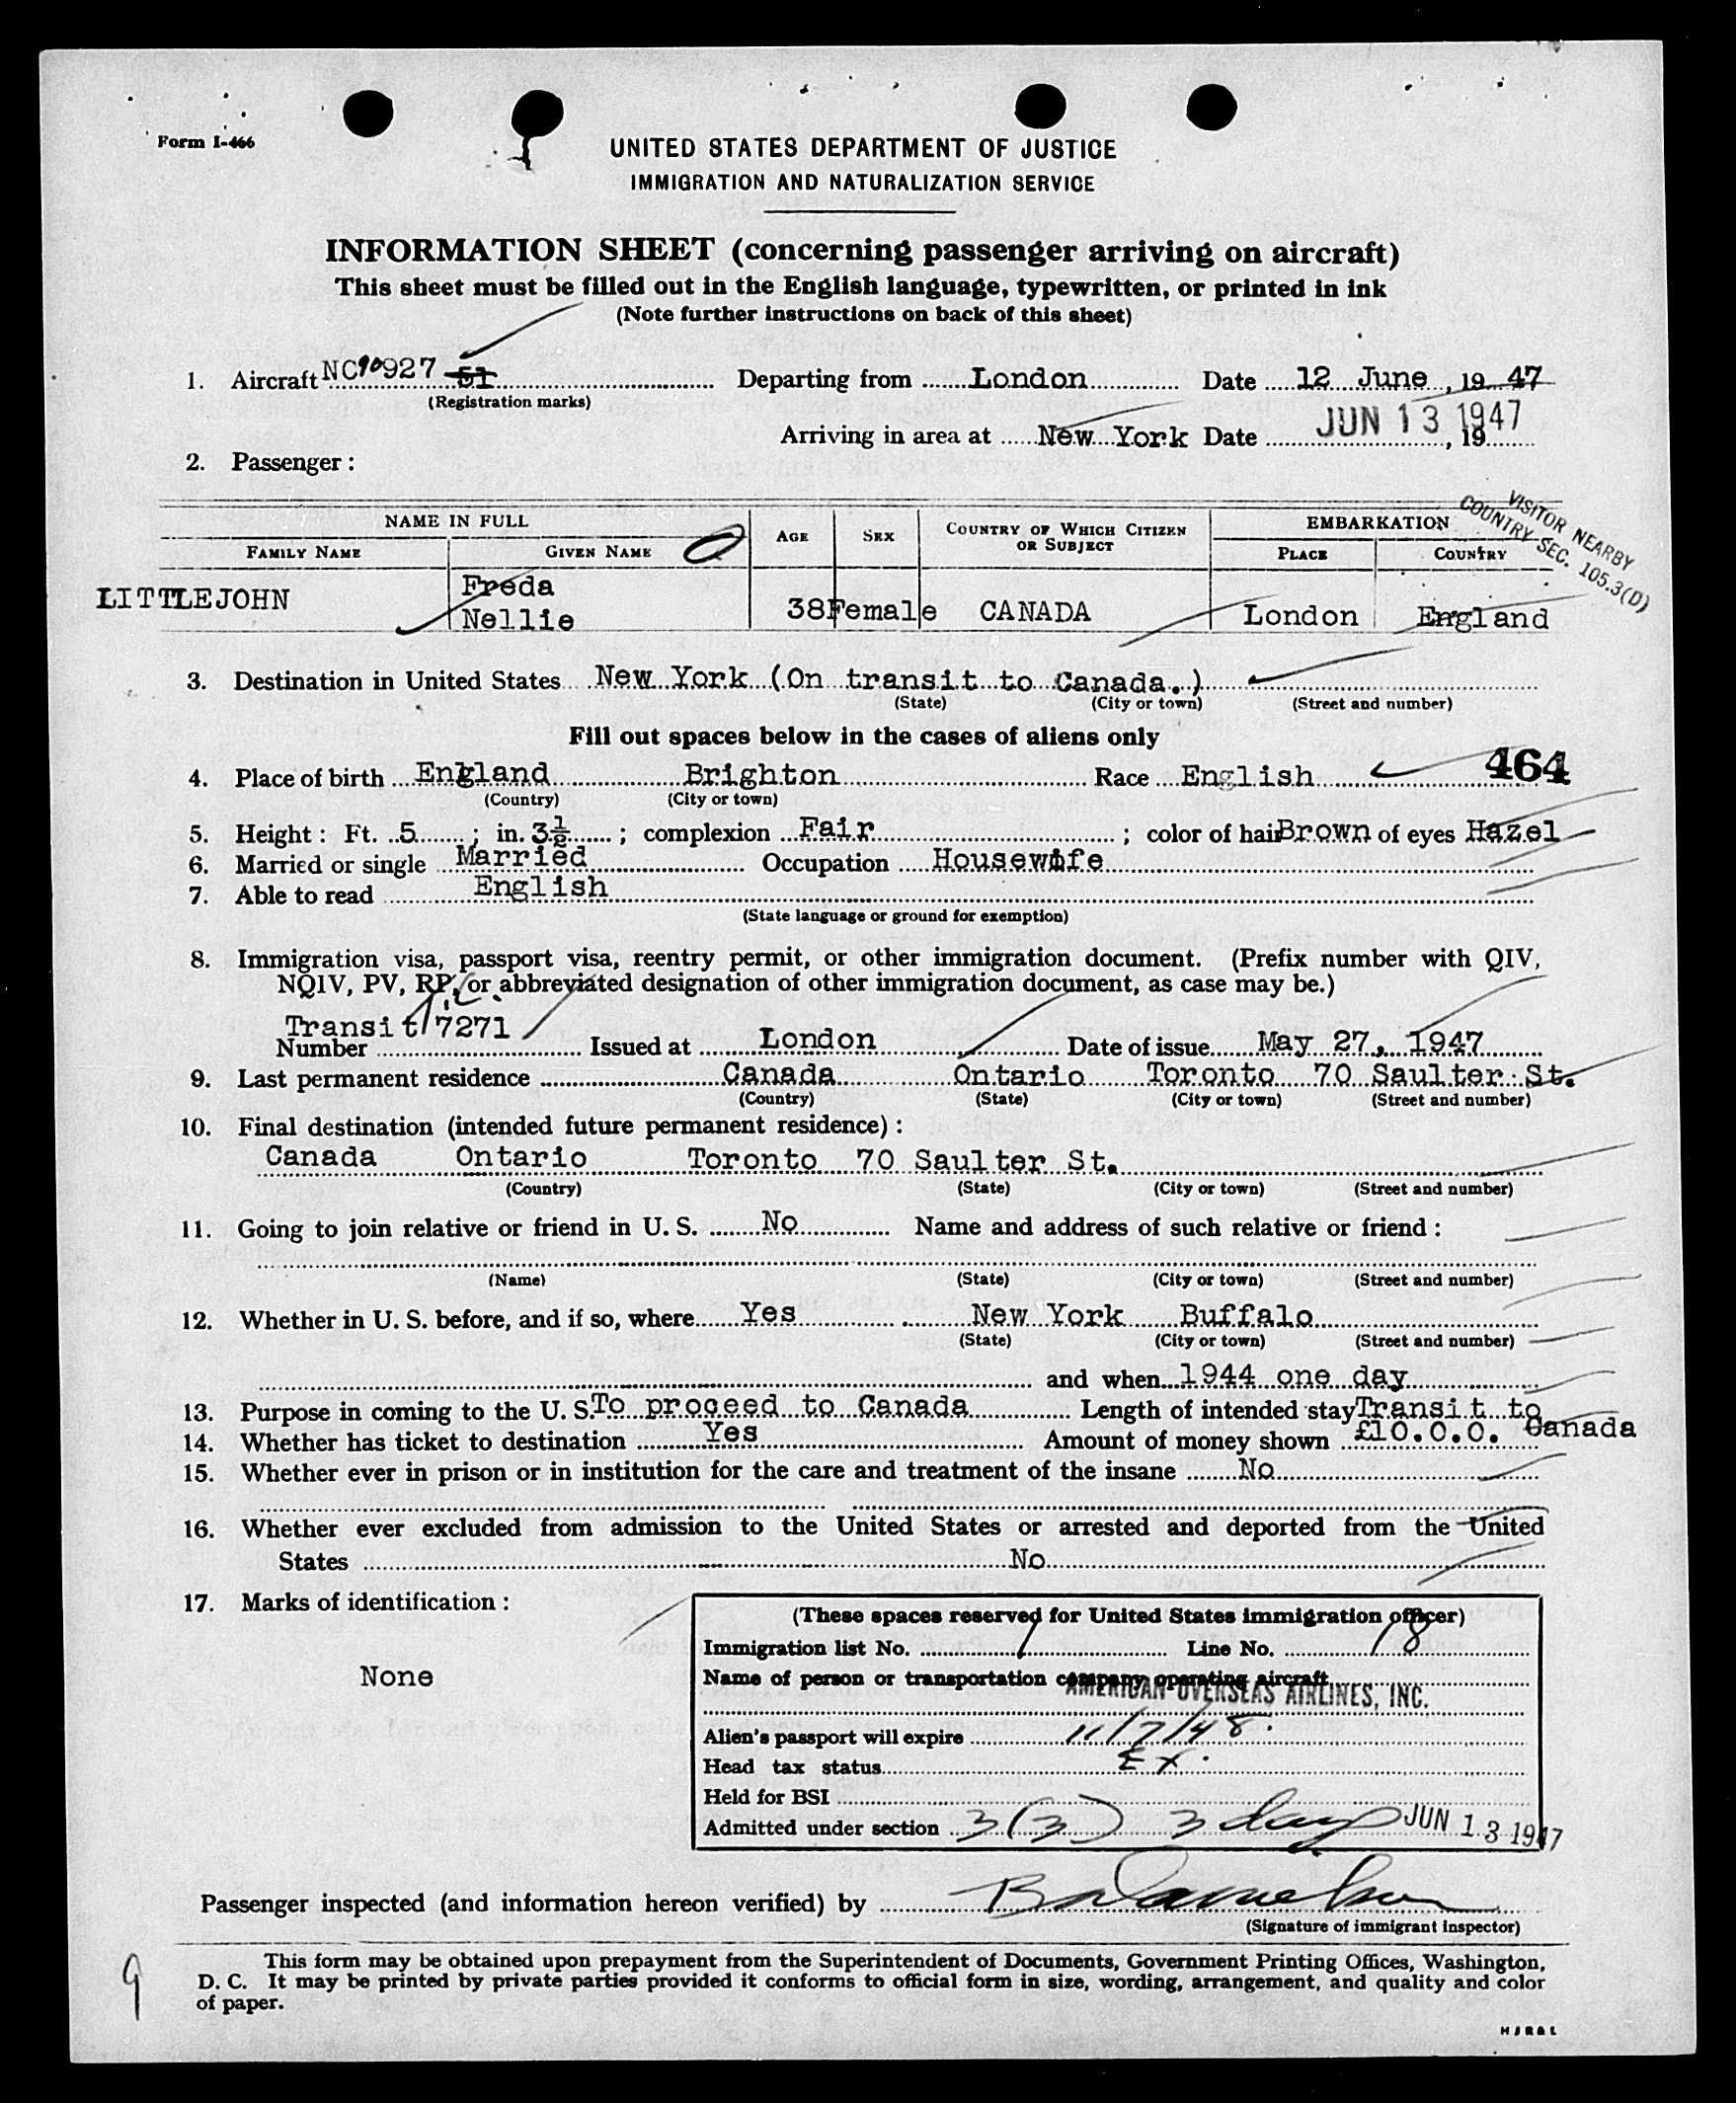 Form I-466
UNITED STATES DEPARTMENT OF JUSTICE
IMMIGRATION AND NATURALIZATION SERVICE
INFORMATION SHEET (concerning passenger arriving on aircraft)
This sheet must be filled out in the English language, typewritten, or printed in ink
(Note further instructions on back of this sheet)
1. Aircraft NC90927 51 Departing from London Date 12 June, 19 47
(Registration marks)
Arriving in area at New York Date JUN 13 1947, 19
2. Passenger:
VISITOR NEARBY
COUNTRY SEC. 105.3(D)
NAME IN FULL AGE SEX COUNTRY OF WHICH CITIZEN OR SUBJECT EMBARKATION
FAMILY NAME GIVEN NAME PLACE COUNTRY
LITTLEJOHN Freda
Nellie 38 Female CANADA London England
3. Destination in United States New York (On transit to Canada.)
(State) (City or town) (Street and number)
Fill out spaces below in the cases of aliens only
464
4. Place of birth England Brighton Race English
(Country) (City or town)
5. Height: Ft. 5; in. 3½; complexion Fair; color of hair Brown of eyes Hazel
6. Married or single Married Occupation Housewife
7. Able to read English
(State language or ground for exemption)
8. Immigration visa, passport visa, reentry permit, or other immigration document. (Prefix number with QIV,
NQIV, PV, RP, or abbreviated designation of other immigration document, as case may be.)
Transit 7271
Number Issued at London Date of issue May 27, 1947
9. Last permanent residence Canada Ontario Toronto 70 Saulter St.
(Country) (State) (City or town) (Street and number)
10. Final destination (intended future permanent residence):
Canada Ontario Toronto 70 Saulter St.
(Country) (State) (City or town) (Street and number)
11. Going to join relative or friend in U. S. No Name and address of such relative or friend:
(Name) (State) (City or town) (Street and number)
12. Whether in U. S. before, and if so, where Yes New York Buffalo
(State) (City or town) (Street and number)
and when 1944 one day
13. Purpose in coming to the U. S. To proceed to Canada Length of intended stay Transit to Canada
14. Whether has ticket to destination Yes Amount of money shown £10.0.0.
15. Whether ever in prison or in institution for the care and treatment of the insane No
16. Whether ever excluded from admission to the United States or arrested and deported from the United
States No
17. Marks of identification:
None
(These spaces reserved for United States immigration officer)
Immigration list No. 1 Line No. 18
Name of person or transportation company operating aircraft
AMERICAN OVERSEAS AIRLINES, INC.
Alien's passport will expire 11/7/48.
Head tax status EX.
Held for BSI
Admitted under section 3(3) 3 days JUN 13 1947
Passenger inspected (and information hereon verified) by
(Signature of immigrant inspector)
This form may be obtained upon prepayment from the Superintendent of Documents, Government Printing Offices, Washington,
D. C. It may be printed by private parties provided it conforms to official form in size, wording, arrangement, and quality and color
of paper.
9